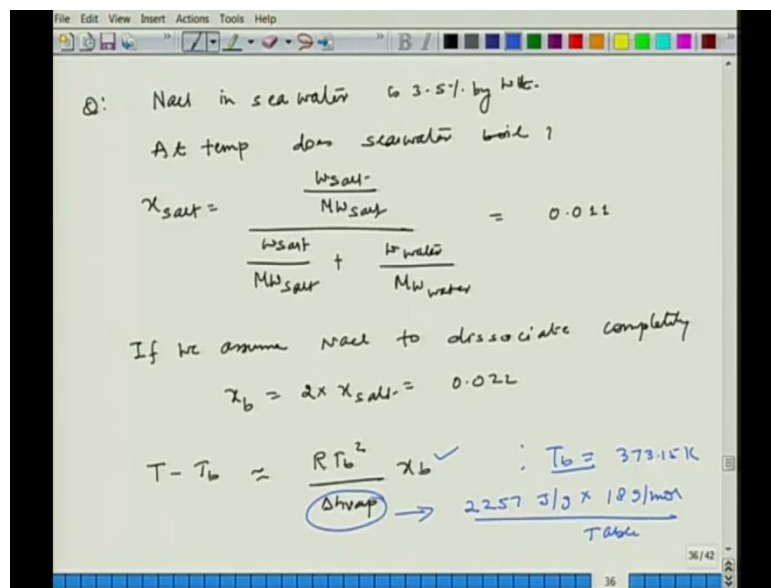 File Edit View Insert Actions Tools Help
B I
Q: NaCl in sea water is 3.5% by wt.
At temp does seawater boil ?
x_salt = (w_salt / MW_salt) / (w_salt / MW_salt + w_water / MW_water) = 0.011
If we assume NaCl to dissociate completely
x_b = 2 × x_salt = 0.022
T - T_b ≈ (R T_b² / Δhvap) x_b ✓ : T_b = 373.15K
→ 2257 J/g × 18 g/mol
Table
36/42
36